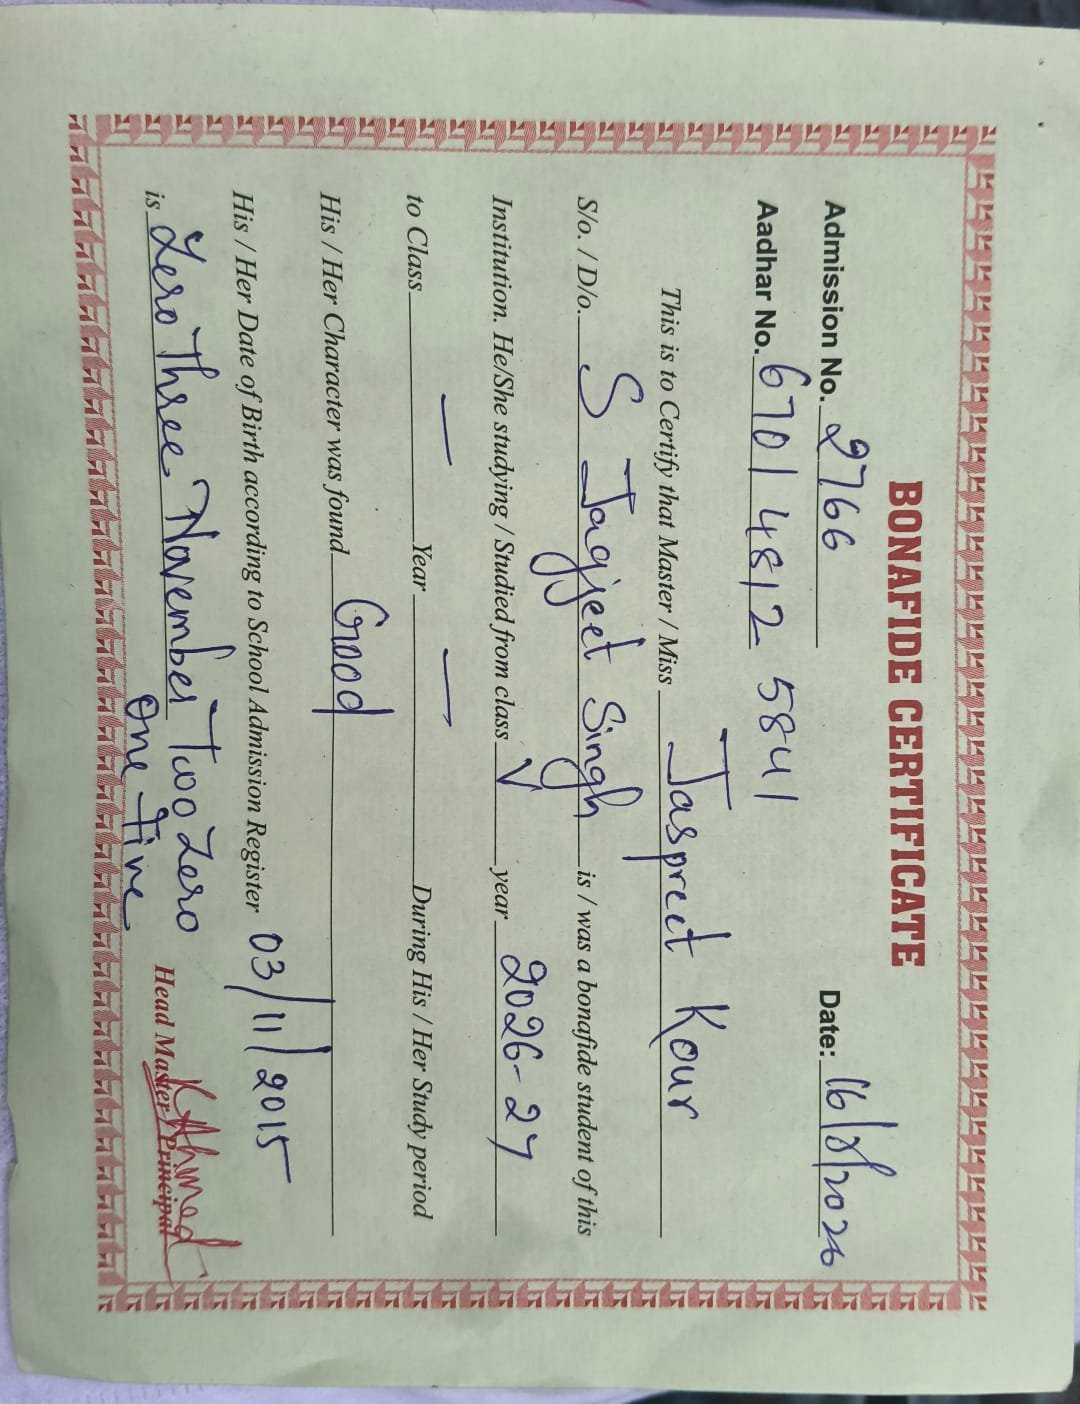 BONAFIDE CERTIFICATE
Admission No. 2766 Date: 16/8/2026
Aadhar No. 6701 4812 5841
This is to Certify that Master / Miss Jaspreet Kour
S/o. / D/o. S Jagjeet Singh is / was a bonafide student of this
Institution. He/She studying / Studied from class V year 2026-27
to Class — Year — During His / Her Study period
His / Her Character was found Good
His / Her Date of Birth according to School Admission Register 03/11/2015
is Zero Three November Two Zero
One Five
KAhmed
Head Master / Principal